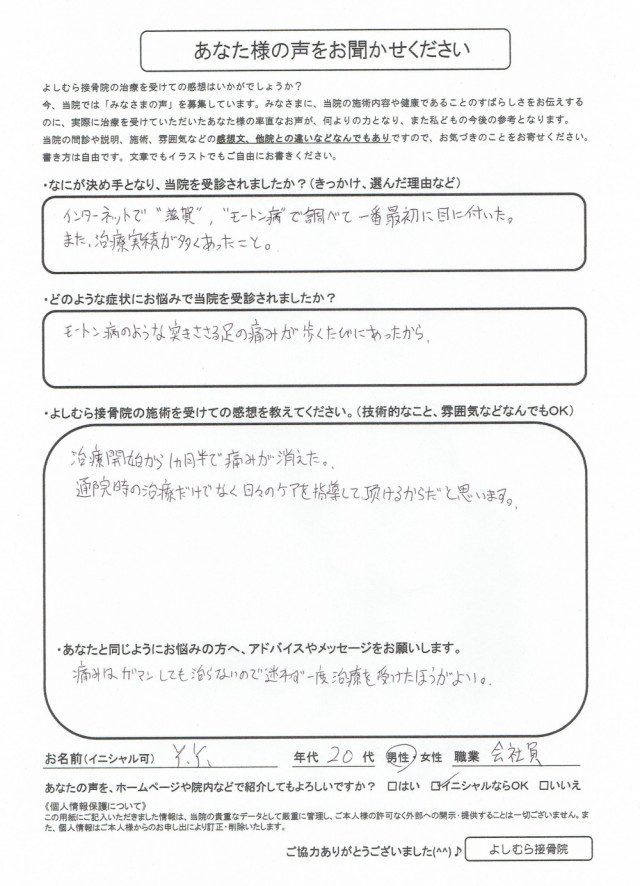 あなた様の声をお聞かせください
よしむら接骨院の治療を受けての感想はいかがでしょうか？
今、当院では「みなさまの声」を募集しています。みなさまに、当院の施術内容や健康であることのすばらしさをお伝えする
のに、実際に治療を受けていただいたあなた様の率直なお声が、何よりの力となり、また私どもの今後の参考となります。
当院の問診や説明、施術、雰囲気などの感想文、他院との違いなどなんでもありですので、お気づきのことをお寄せください。
書き方は自由です。文章でもイラストでもご自由にお書きください。
・なにが決め手となり、当院を受診されましたか？（きっかけ、選んだ理由など）
インターネットで“滋賀”,“モートン病”で調べて一番最初に目に付いた。
また、治療実績が多くあったこと。
・どのような症状にお悩みで当院を受診されましたか？
モートン病のような突きささる足の痛みが歩くたびにあったから。
・よしむら接骨院の施術を受けての感想を教えてください。（技術的なこと、雰囲気などなんでもOK）
治療開始から1ヵ月半で痛みが消えた。
通院時の治療だけでなく日々のケアを指導して頂けるからだと思います。
・あなたと同じようにお悩みの方へ、アドバイスやメッセージをお願いします。
痛みはガマンしても治らないので迷わず一度治療を受けたほうがよい。
お名前（イニシャル可） Y.Y. 年代 20 代 男性・女性 職業 会社員
あなたの声を、ホームページや院内などで紹介してもよろしいですか？ □はい ☑イニシャルならOK □いいえ
《個人情報保護について》
この用紙にご記入いただきました情報は、当院の貴重なデータとして厳重に管理し、ご本人様の許可なく外部への開示・提供することは一切ございません。ま
た、個人情報はご本人様からのお申し出により訂正・削除いたします。
ご協力ありがとうございました(^^)♪ よしむら接骨院